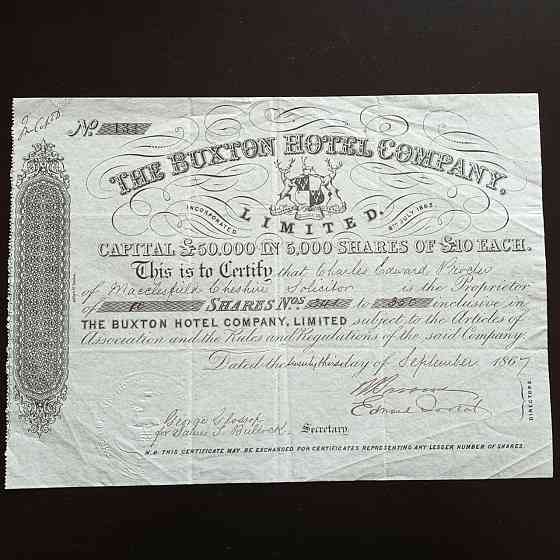 No
THE BUXTON HOTEL COMPANY,
INCORPORATED 8TH JULY 1865.
LIMITED.
CAPITAL £50.000 IN 5,000 SHARES OF £10 EACH.
This is to Certify that Charles Edward Procter
of Macclesfield Cheshire Solicitor is the Proprietor
of SHARES Nos 341 to 350 inclusive in
THE BUXTON HOTEL COMPANY, LIMITED subject to the Articles of
Association and the Rules and Regulations of the said Company.
Dated the day of September 1867
DIRECTORS.
George
for James Bullock. Secretary.
N.B. THIS CERTIFICATE MAY BE EXCHANGED FOR CERTIFICATES REPRESENTING ANY LESSER NUMBER OF SHARES.